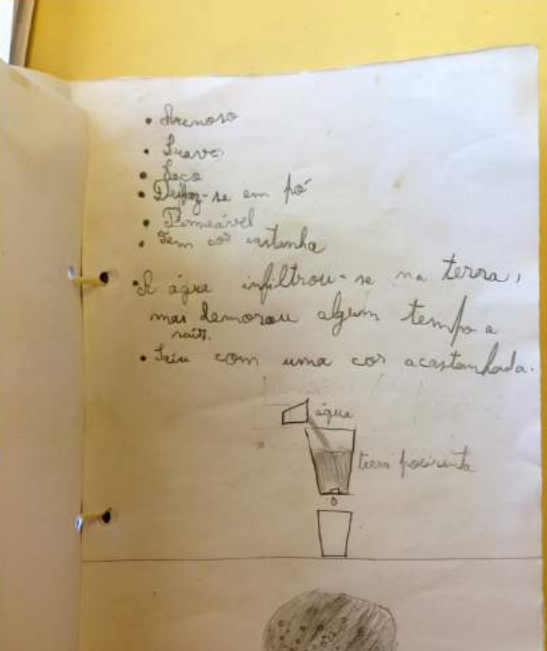 • Arenoso
• Suave
• Seco
• Desfaz-se em pó
• Permeável
• Tem cor castanha
• A água infiltrou-se na terra,
mas demorou algum tempo a
sair.
• Saiu com uma cor acastanhada.
água
terra poeirenta